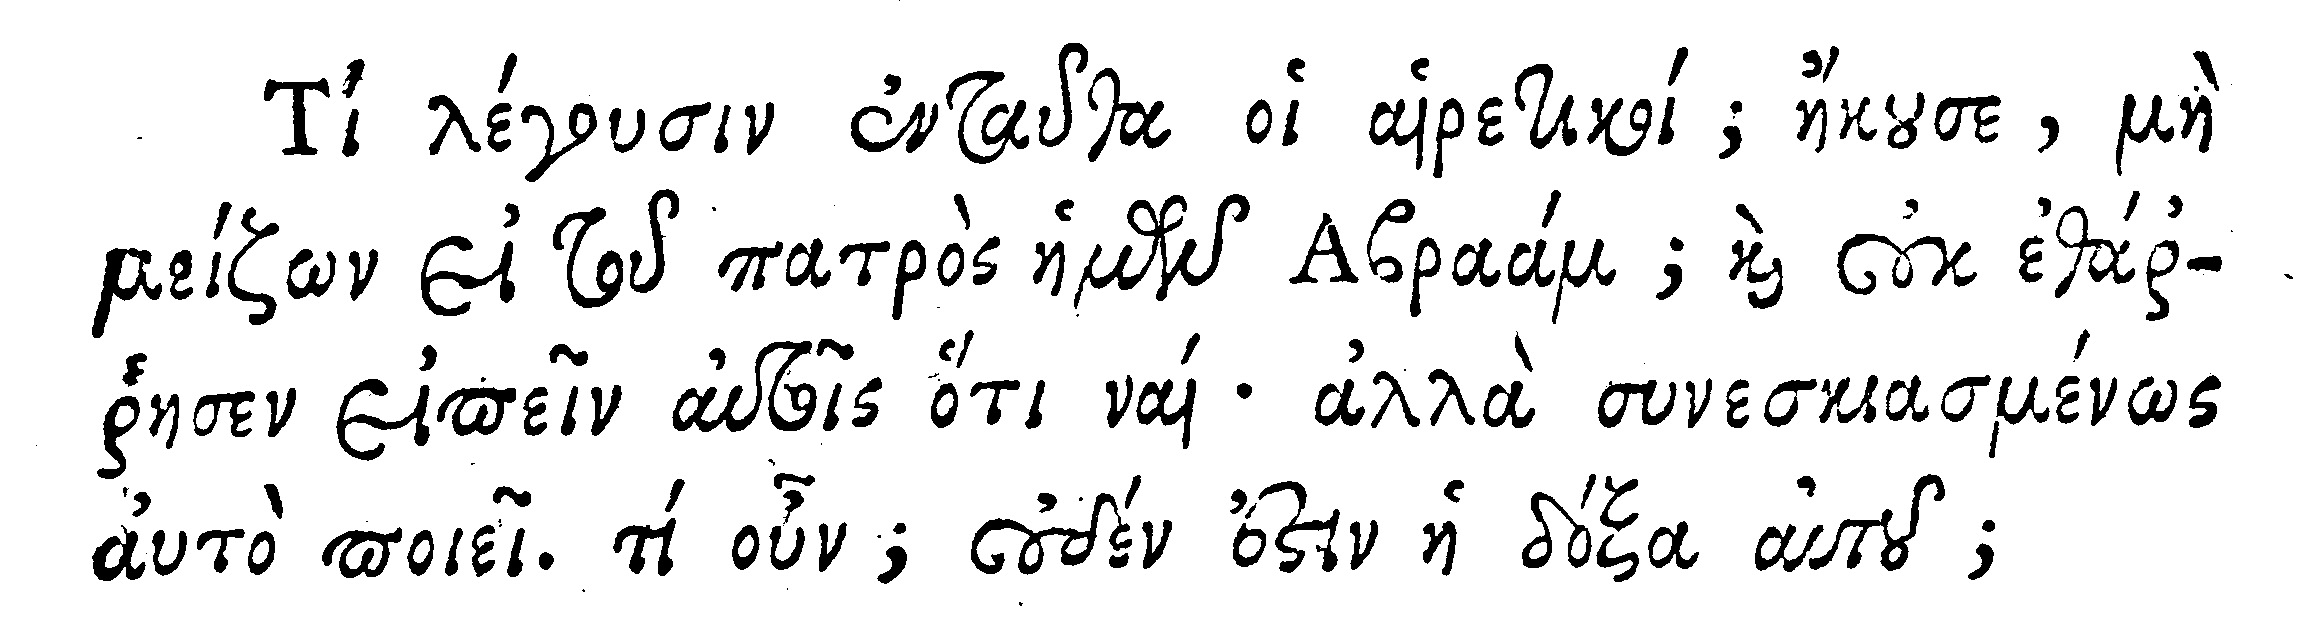 Τί λέγουσιν ἐνταῦθα οἱ αἱρετικοί; ἤκουσε, μὴ
μείζων εἶ τοῦ πατρὸς ἡμῶν Αβραάμ; καὶ οὐκ ἐθάῤ-
ῥησεν εἰπεῖν αὐτοῖς ὅτι ναί· ἀλλὰ συνεσκιασμένως
ἀυτὸ ποιεῖ. τί οὖν; οὐδέν ἐστιν ἡ δόξα αὐτοῦ;